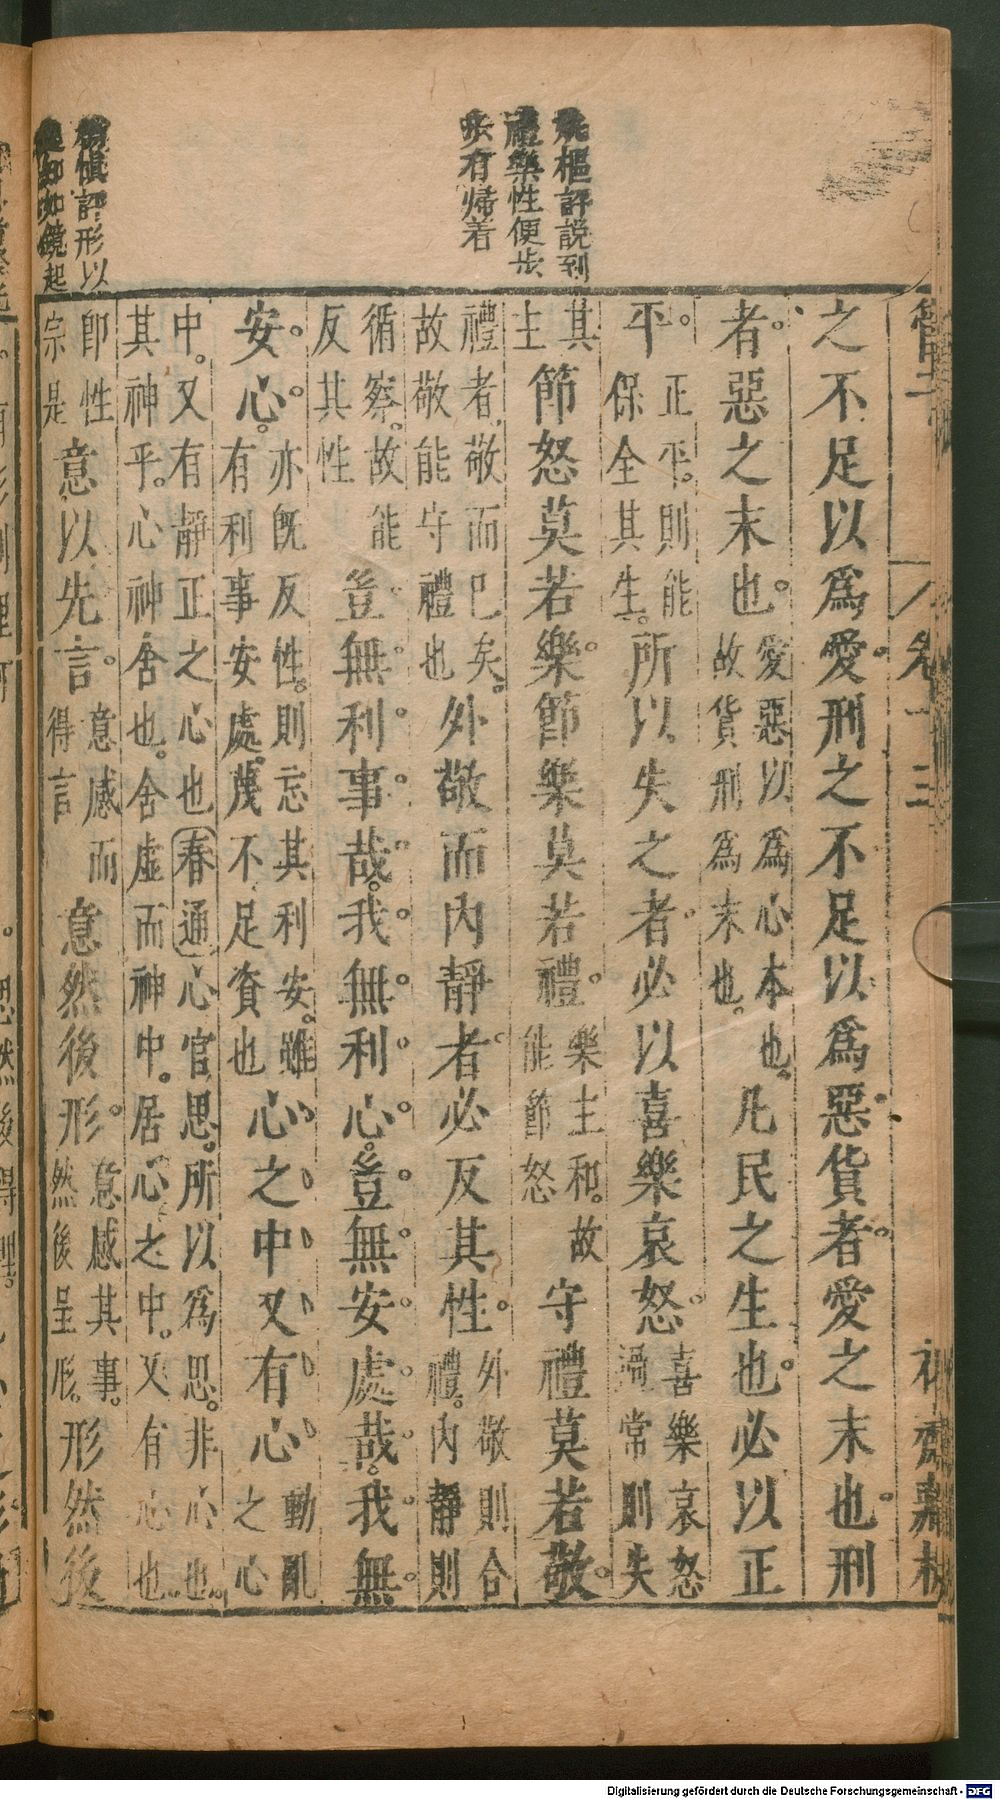 之不足以爲愛刑之不足以爲惡貨者愛之末也刑
者惡之末也愛惡以爲心本也故貨刑爲末也凡民之生也必以正
平正平則能保全其生所以失之者必以喜樂哀怒喜樂哀怒過常則失
其主節怒莫若樂節樂莫若禮樂主和故能節怒守禮莫若敬
禮者敬而已矣故敬能守禮也外敬而內靜者必反其性外敬則合禮內靜則
循察故能反其性豈無利事哉我無利心豈無安處哉我無
安心亦旣反性則忘其利安雖有利事安處蔑不足資也心之中又有心動亂之心
中又有靜正之心也春通心官思所以爲思非心也其神乎心神舍也舍虛而神中居心之中又有心也
即性宗是意以先言意感而得言意然後形意感其事然後呈形形然後
樞評說到
禮樂性便步
步有帰着
愼評形以
如鏡起
卷十三
Digitalisierung gefördert durch die Deutsche Forschungsgemeinschaft - DFG